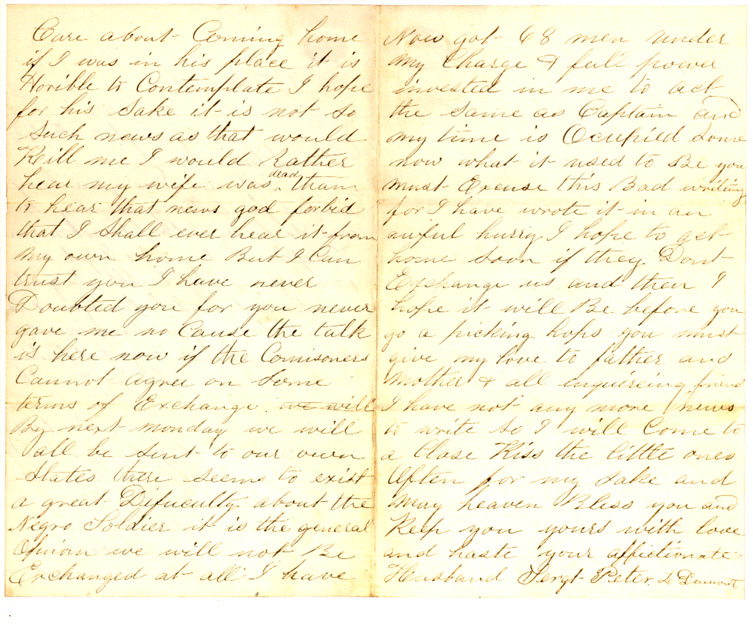 Care about Coming home
if I was in his place it is
Horible to Contemplate I hope
for his Sake it is not so
Such news as that would
Kill me I would Rather
hear my wife was dead than
to hear that news god forbid
that I Shall ever hear it from
my own home But I Can
trust you I have never
Doubted you for you never
gave me no Cause the talk
is here now if the Comisoners
Cannot agree on Some
terms of Exchange. we will
By next monday we will
all be Sent to our own
States there seems to exist
a great Difuculty about the
Negro Soldier it is the general
Opinion we will not Be
Exchanged at all I have
Now got 68 men under
my Charge & full power
invested in me to act
the Same as Captain and
my time is Ocupied Some
now what it used to Be you
must Excuse this Bad writing
for I have wrote it in an
awful hurry I hope to get
home Soon if they Dont
Exchange us and then I
hope it will Be before you
go a picking hops you must
give my love to father and
Mother & all enquireing friends
I have not any more news
to write So I will Come to
a Close Kiss the little ones
Often for my Sake and
may heaven Bless you and
Keep you yours with love
and haste your affictionate
Husband Sergt Peter L Dumont